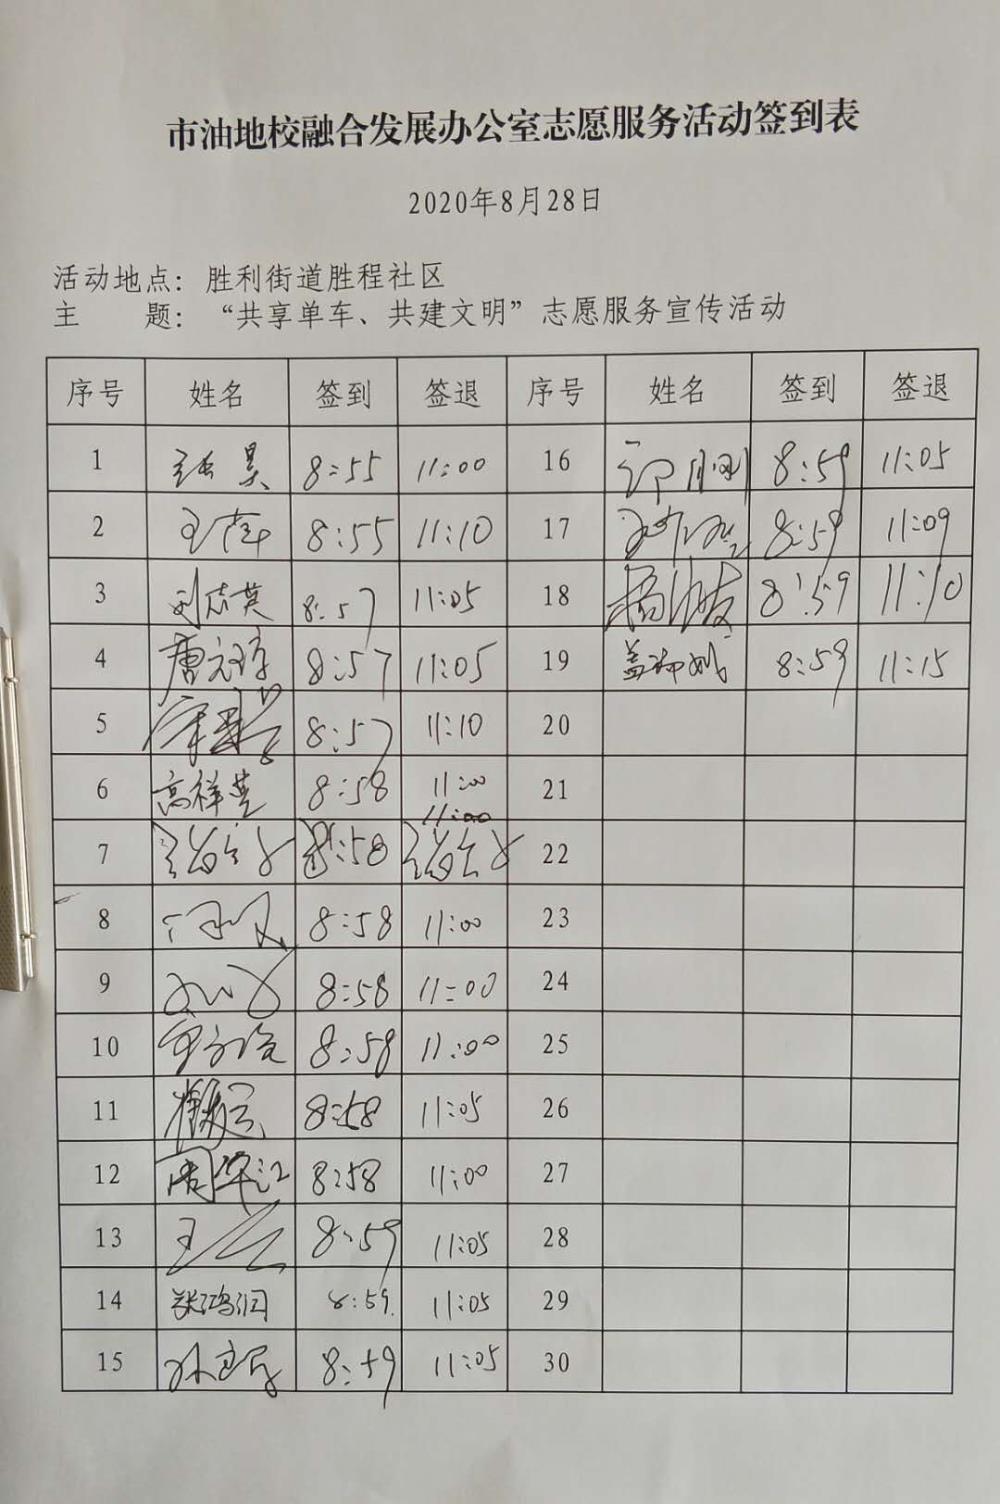 市油地校融合发展办公室志愿服务活动签到表
2020年8月28日
活动地点：胜利街道胜程社区
主 题：“共享单车、共建文明”志愿服务宣传活动
序号 姓名 签到 签退 序号 姓名 签到 签退
1 张昊 8:55 11:00 16 8:59 11:05
2 8:55 11:10 17 8:59 11:09
3 刘志英 8:57 11:05 18 8:59 11:10
4 8:57 11:05 19 8:59 11:15
5 8:57 11:10 20
6 高祥 8:58 11:00 21
11:00
7 8:58 22
8 8:58 11:00 23
9 8:58 11:00 24
10 8:58 11:00 25
11 8:58 11:05 26
12 周军江 8:58 11:00 27
13 8:59 11:05 28
14 张鸿润 8:59 11:05 29
15 8:59 11:05 30